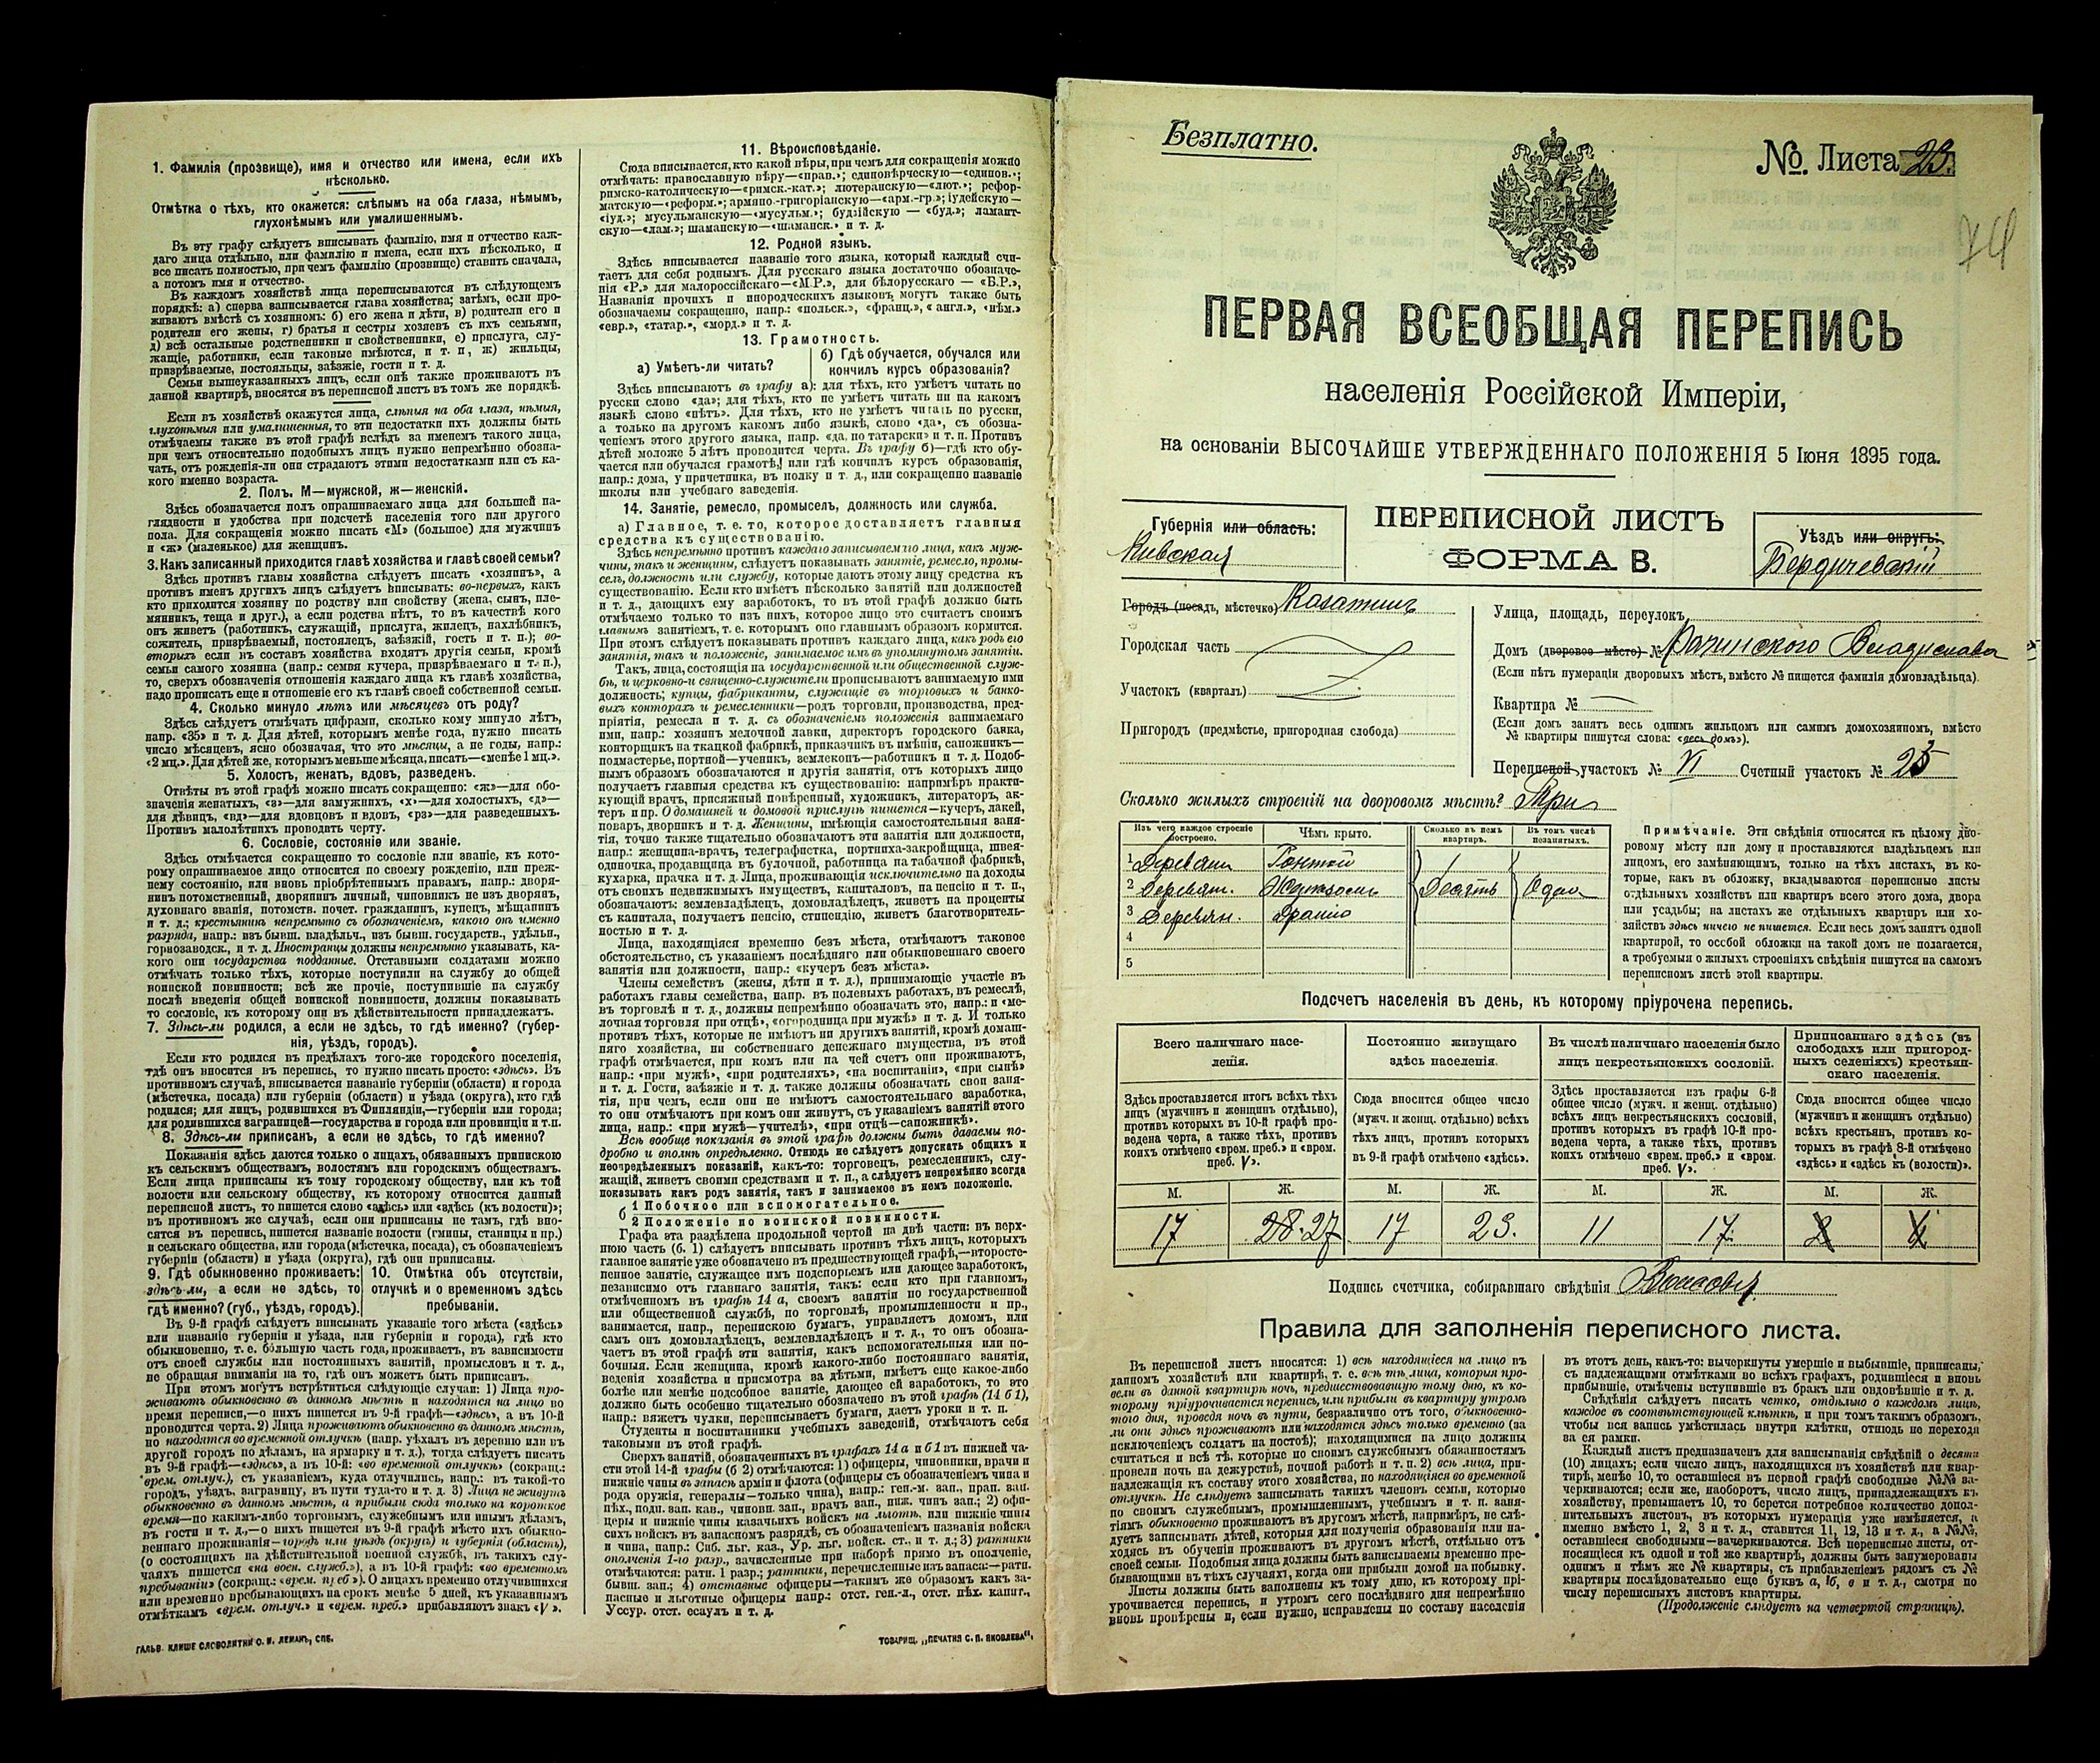 1. Фамилія (прозвище), имя и отчество или имена, если ихъ
нѣсколько.
Отмѣтка о тѣхъ, кто окажется: слѣпымъ на оба глаза, нѣмымъ,
глухонѣмымъ или умалишеннымъ.
Въ эту графу слѣдуетъ вписывать фамилію, имя и отчество каж-
даго лица отдѣльно, или фамилію и имена, если ихъ нѣсколько, и
все писать полностью, при чемъ фамилію (прозвище) ставить сначала,
а потомъ имя и отчество.
Въ каждомъ хозяйствѣ лица переписываются въ слѣдующемъ
порядкѣ: а) сперва записывается глава хозяйства; затѣмъ, если про-
живаютъ вмѣстѣ съ хозяиномъ: б) его жена и дѣти, в) родители его и
родители его жены, г) братья и сестры хозяевъ съ ихъ семьями,
д) всѣ остальные родственники и свойственники, е) прислуга, слу-
жащіе, работники, если таковые имѣются, и т. п, ж) жильцы,
призрѣваемые, постояльцы, заѣзжіе, гости и т. д.
Семьи вышеуказанныхъ лицъ, если онѣ также проживаютъ въ
данной квартирѣ, вносятся въ переписной листъ въ томъ же порядкѣ.
Если въ хозяйствѣ окажутся лица, слѣпыя на оба глаза, нѣмыя,
глухонѣмыя или умалишенныя, то эти недостатки ихъ должны быть
отмѣчаемы также въ этой графѣ вслѣдъ за именемъ такого лица,
при чемъ относительно подобныхъ лицъ нужно непремѣнно обозна-
чать, отъ рожденія-ли они страдаютъ этими недостатками или съ ка-
кого именно возраста.
2. Полъ. М—мужской, ж—женскій.
Здѣсь обозначается полъ опрашиваемаго лица для большей на-
глядности и удобства при подсчетѣ населенія того или другого
пола. Для сокращенія можно писать «М» (большое) для мужчинъ
и «ж» (маленькое) для женщинъ.
3. Какъ записанный приходится главѣ хозяйства и главѣ своей семьи?
Здѣсь противъ главы хозяйства слѣдуетъ писать «хозяинъ», а
противъ именъ другихъ лицъ слѣдуетъ вписывать: во-первыхъ, какъ
кто приходится хозяину по родству или свойству (жена, сынъ, пле-
мянникъ, теща и друг.), а если родства нѣтъ, то въ качествѣ кого
онъ живетъ (работникъ, служащій, прислуга, жилецъ, нахлѣбникъ,
сожитель, призрѣваемый, постоялецъ, заѣзжій, гость и т. п.); во-
вторыхъ если въ составъ хозяйства входятъ другія семьи, кромѣ
семьи самого хозяина (напр.: семья кучера, призрѣваемаго и т. п.),
то, сверхъ обозначенія отношенія каждаго лица къ главѣ хозяйства,
надо прописать еще и отношеніе его къ главѣ своей собственной семьи.
4. Сколько минуло лѣтъ или мѣсяцевъ отъ роду?
Здѣсь слѣдуетъ отмѣчать цифрами, сколько кому минуло лѣтъ,
напр. «35» и т. д. Для дѣтей, которымъ менѣе года, нужно писать
число мѣсяцевъ, ясно обозначая, что это мѣсяцы, а не годы, напр.:
«2 мц.». Для дѣтей же, которымъ меньше мѣсяца, писать—«менѣе 1 мц.».
5. Холостъ, женатъ, вдовъ, разведенъ.
Отвѣты въ этой графѣ можно писать сокращенно: «ж»—для обо-
значенія женатыхъ, «з»—для замужнихъ, «х»—для холостыхъ, «д»—
для дѣвицъ, «вд»—для вдовцовъ и вдовъ, «рз»—для разведенныхъ.
Противъ малолѣтнихъ проводить черту.
6. Сословіе, состояніе или званіе.
Здѣсь отмѣчается сокращенно то сословіе или званіе, къ кото-
рому опрашиваемое лицо относится по своему рожденію, или преж-
нему состоянію, или вновь пріобрѣтеннымъ правамъ, напр.: дворя-
нинъ потомственный, дворянинъ личный, чиновникъ не изъ дворянъ,
духовнаго званія, потомств. почет. гражданинъ, купецъ, мѣщанинъ
и т. д.; крестьянинъ непремѣнно съ обозначеніемъ, какого онъ именно
разряда, напр.: изъ бывш. владѣльч., изъ бывш. государств., удѣльн.,
горнозаводск., и т. д. Иностранцы должны непремѣнно указывать, ка-
кого они государства подданные. Отставными солдатами можно
отмѣчать только тѣхъ, которые поступили на службу до общей
воинской повинности; всѣ же прочіе, поступившіе на службу
послѣ введенія общей воинской повинности, должны показывать
то сословіе, къ которому они въ дѣйствительности принадлежатъ.
7. Здѣсь-ли родился, а если не здѣсь, то гдѣ именно? (губер-
нія, уѣздъ, городъ).
Если кто родился въ предѣлахъ того-же городского поселенія,
гдѣ онъ вносится въ перепись, то нужно писать просто: «здѣсь». Въ
противномъ случаѣ, вписывается названіе губерніи (области) и города
(мѣстечка, посада) или губерніи (области) и уѣзда (округа), кто гдѣ
родился; для лицъ, родившихся въ Финляндіи,—губерніи или города;
для родившихся заграницей—государства и города или провинціи и т.п.
8. Здѣсь-ли приписанъ, а если не здѣсь, то гдѣ именно?
Показанія здѣсь даются только о лицахъ, обязанныхъ припискою
къ сельскимъ обществамъ, волостямъ или городскимъ обществамъ.
Если лица приписаны къ тому городскому обществу, или къ той
волости или сельскому обществу, къ которому относится данный
переписной листъ, то пишется слово «здѣсь» или «здѣсь (къ волости)»;
въ противномъ же случаѣ, если они приписаны не тамъ, гдѣ вно-
сятся въ перепись, пишется названіе волости (гмины, станицы и пр.)
и сельскаго общества, или города (мѣстечка, посада), съ обозначеніемъ
губерніи (области) и уѣзда (округа), гдѣ они приписаны.
9. Гдѣ обыкновенно проживаетъ:
здѣсь-ли, а если не здѣсь, то
гдѣ именно? (губ., уѣздъ, городъ).
10. Отмѣтка объ отсутствіи,
отлучкѣ и о временномъ здѣсь
пребываніи.
Въ 9-й графѣ слѣдуетъ вписывать указаніе того мѣста («здѣсь»
или названіе губерніи и уѣзда, или губерніи и города), гдѣ кто
обыкновенно, т. е. бо́льшую часть года, проживаетъ, въ зависимости
отъ своей службы или постоянныхъ занятій, промысловъ и т. д.,
не обращая вниманія на то, гдѣ онъ можетъ быть приписанъ.
При этомъ могутъ встрѣтиться слѣдующіе случаи: 1) Лица про-
живаютъ обыкновенно въ данномъ мѣстѣ и находятся на лицо во
время переписи,—о нихъ пишется въ 9-й графѣ—«здѣсь», а въ 10-й
проводится черта. 2) Лица проживаютъ обыкновенно въ данномъ мѣстѣ,
но находятся во временной отлучкѣ (напр. уѣхалъ въ деревню или въ
другой городъ по дѣламъ, на ярмарку и т. д.), тогда слѣдуетъ писать
въ 9-й графѣ—«здѣсь», а въ 10-й: «во временной отлучкѣ» (сокращ.:
«врем. отлуч.), съ указаніемъ, куда отлучились, напр.: въ такой-то
городъ, уѣздъ, заграницу, въ пути туда-то и т. д. 3) Лица не живутъ
обыкновенно въ данномъ мѣстѣ, а прибыли сюда только на короткое
время—по какимъ-либо торговымъ, служебнымъ или инымъ дѣламъ,
въ гости и т. д.,—о нихъ пишется въ 9-й графѣ мѣсто ихъ обыкно-
веннаго проживанія—городъ или уѣздъ (округъ) и губернія (область),
(о состоящихъ на дѣйствительной военной службѣ, въ такихъ слу-
чаяхъ пишется «на воен. служб.»), а въ 10-й графѣ: «во временномъ
пребываніи» (сокращ.: «врем. преб»). О лицахъ временно отлучившихся
или временно пребывающихъ на срокъ менѣе 5 дней, къ указаннымъ
отмѣткамъ «врем. отлуч.» и «врем. преб.» прибавляютъ знакъ «V».
ГАЛЬВ. КЛИШЕ СЛОВОЛИТНИ О. И. ЛЕМАНЪ, СПБ.
11. Вѣроисповѣданіе.
Сюда вписывается, кто какой вѣры, при чемъ для сокращенія можно
отмѣчать: православную вѣру—«прав.»; единовѣрческую—«единов.»;
римско-католическую—«римск.-кат.»; лютеранскую—«лют.»; рефор-
матскую—«реформ.»; армяно-григоріанскую—«арм.-гр.»; іудейскую—
«іуд.»; мусульманскую—«мусульм.»; буддійскую — «буд.»; ламаит-
скую—«лам.»; шаманскую—«шаманск.» и т. д.
12. Родной языкъ.
Здѣсь вписывается названіе того языка, который каждый счи-
таетъ для себя роднымъ. Для русскаго языка достаточно обозначе-
нія «Р.» для малороссійскаго—«М.Р.», для бѣлорусскаго — «Б.Р.»,
Названія прочихъ и инородческихъ языковъ могутъ также быть
обозначаемы сокращенно, напр.: «польск.», «франц.», « англ.», «нѣм.»
«евр.», «татар.», «морд.» и т. д.
13. Грамотность.
а) Умѣетъ-ли читать?
б) Гдѣ обучается, обучался или
кончилъ курсъ образованія?
Здѣсь вписываютъ въ графу а): для тѣхъ, кто умѣетъ читать по
русски слово «да»; для тѣхъ, кто не умѣетъ читать ни на какомъ
языкѣ слово «нѣтъ». Для тѣхъ, кто не умѣетъ читать по русски,
а только на другомъ какомъ либо языкѣ, слово «да», съ обозна-
ченіемъ этого другого языка, напр. «да, по татарски» и т. п. Противъ
дѣтей моложе 5 лѣтъ проводится черта. Въ графу б)—гдѣ кто обу-
чается или обучался грамотѣ, или гдѣ кончилъ курсъ образованія,
напр.: дома, у причетника, въ полку и т. д., или сокращенно названіе
школы или учебнаго заведенія.
14. Занятіе, ремесло, промыселъ, должность или служба.
а) Главное, т. е. то, которое доставляетъ главныя
средства къ существованію.
Здѣсь непремѣнно противъ каждаго записываемаго лица, какъ муж-
чины, такъ и женщины, слѣдуетъ показывать занятіе, ремесло, промы-
селъ, должность или службу, которые даютъ этому лицу средства къ
существованію. Если кто имѣетъ нѣсколько занятій или должностей
и т. д., дающихъ ему заработокъ, то въ этой графѣ должно быть
отмѣчаемо только то изъ нихъ, которое лицо это считаетъ своимъ
главнымъ занятіемъ, т. е. которымъ оно главнымъ образомъ кормится.
При этомъ слѣдуетъ показывать противъ каждаго лица, какъ родъ его
занятія, такъ и положеніе, занимаемое имъ въ упомянутомъ занятіи.
Такъ, лица, состоящія на государственной или общественной служ-
бѣ, и церковно-и священно-служители прописываютъ занимаемую ими
должность; купцы, фабриканты, служащіе въ торговыхъ и банко-
выхъ конторахъ и ремесленники—родъ торговли, производства, пред-
пріятія, ремесла и т. д. съ обозначеніемъ положенія занимаемаго
ими, напр.: хозяинъ мелочной лавки, директоръ городского банка,
конторщикъ на ткацкой фабрикѣ, приказчикъ въ имѣніи, сапожникъ—
подмастерье, портной—ученикъ, землекопъ—работникъ и т. д. Подоб-
нымъ образомъ обозначаются и другія занятія, отъ которыхъ лицо
получаетъ главныя средства къ существованію: напримѣръ практи-
кующій врачъ, присяжный повѣренный, художникъ, литераторъ, ак-
теръ и пр. О домашней и домовой прислугѣ пишется—кучеръ, лакей,
поваръ, дворникъ и т. д. Женщины, имѣющія самостоятельныя заня-
тія, точно также тщательно обозначаютъ эти занятія или должности,
напр.: женщина-врачъ, телеграфистка, портниха-закройщица, швея-
одиночка, продавщица въ булочной, работница на табачной фабрикѣ,
кухарка, прачка и т. д. Лица, проживающія исключительно на доходы
отъ своихъ недвижимыхъ имуществъ, капиталовъ, на пенсію и т. п.,
обозначаютъ: землевладѣлецъ, домовладѣлецъ, живетъ на проценты
съ капитала, получаетъ пенсію, стипендію, живетъ благотворитель-
ностью и т. д.
Лица, находящіяся временно безъ мѣста, отмѣчаютъ таковое
обстоятельство, съ указаніемъ послѣдняго или обыкновеннаго своего
занятія или должности, напр.: «кучеръ безъ мѣста».
Члены семействъ (жены, дѣти и т. д.), принимающіе участіе въ
работахъ главы семейства, напр. въ полевыхъ работахъ, въ ремеслѣ,
въ торговлѣ и т. д., должны непремѣнно обозначать это, напр.: и «ме-
лочная торговля при отцѣ», «огородница при мужѣ» и т. д. И только
противъ тѣхъ, которые не имѣютъ ни другихъ занятій, кромѣ домаш-
няго хозяйства, ни собственнаго денежнаго имущества, въ этой
графѣ отмѣчается, при комъ или на чей счетъ они проживаютъ,
напр.: «при мужѣ», «при родителяхъ», «на воспитаніи», «при сынѣ»
и т. д. Гости, заѣзжіе и т. д. также должны обозначать свои заня-
тія, при чемъ, если они не имѣютъ самостоятельнаго заработка,
то они отмѣчаютъ при комъ они живутъ, съ указаніемъ занятій этого
лица, напр.: «при мужѣ—учителѣ», «при отцѣ—сапожникѣ».
Всѣ вообще показанія въ этой графѣ должны быть даваемы по-
дробно и вполнѣ опредѣленно. Отнюдь не слѣдуетъ допускать общихъ и
неопредѣленныхъ показаній, какъ-то: торговецъ, ремесленникъ, слу-
жащій, живетъ своими средствами и т. п., а слѣдуетъ непремѣнно всегда
показывать какъ родъ занятія, такъ и занимаемое въ немъ положеніе.
б 1 Побочное или вспомогательное.
2 Положеніе по воинской повинности.
Графа эта раздѣлена продольной чертой на двѣ части: въ верх-
нюю часть (б. 1) слѣдуетъ вписывать противъ тѣхъ лицъ, которыхъ
главное занятіе уже обозначено въ предшествующей графѣ,—второсте-
пенное занятіе, служащее имъ подспорьемъ или дающее заработокъ,
независимо отъ главнаго занятія, такъ: если кто при главномъ,
отмѣченномъ въ графѣ 14 а, своемъ занятіи по государственной
или общественной службѣ, по торговлѣ, промышленности и пр.,
занимается, напр., перепискою бумагъ, управляетъ домомъ, или
самъ онъ домовладѣлецъ, землевладѣлецъ и т. д., то онъ обозна-
чаетъ въ этой графѣ эти занятія, какъ вспомогательныя или по-
бочныя. Если женщина, кромѣ какого-либо постояннаго занятія,
веденія хозяйства и присмотра за дѣтьми, имѣетъ еще какое-либо
болѣе или менѣе подсобное занятіе, дающее ей заработокъ, то это
должно быть особенно тщательно обозначено въ этой графѣ (14 б 1),
напр.: вяжетъ чулки, переписываетъ бумаги, даетъ уроки и т. п.
Студенты и воспитанники учебныхъ заведеній, отмѣчаютъ себя
таковыми въ этой графѣ.
Сверхъ занятій, обозначенныхъ въ графахъ 14 а и б 1 въ нижней ча-
сти этой 14-й графы (б 2) отмѣчаются: 1) офицеры, чиновники, врачи и
нижніе чины въ запасѣ арміи и флота (офицеры съ обозначеніемъ чина и
рода оружія, генералы—только чина), напр.: ген-м. зап., прап. зап.
пѣх., подп. зап. кав., чиновн. зап., врачъ зап., ниж. чинъ зап.; 2) офи-
церы и нижніе чины казачьихъ войскъ на льготѣ, или нижніе чины
сихъ войскъ въ запасномъ разрядѣ, съ обозначеніемъ названія войска
и чина, напр.: Сиб. льг. каз., Ур. льг. войск. ст., и т. д.; 3) ратники
ополченія 1-го разр., зачисленные при наборѣ прямо въ ополченіе,
отмѣчаются: ратн. 1 разр.; ратники, перечисленные изъ запаса:—ратн.
бывш. зап.; 4) отставные офицеры—такимъ же образомъ какъ за-
пасные и льготные офицеры напр.: отст. ген-л., отст. пѣх. капит.,
Уссур. отст. есаулъ и т. д.
ТОВАРИЩ. „ПЕЧАТНЯ С. П. ЯКОВЛЕВА".
Безплатно.
№. Листа 23.
74
ПЕРВАЯ ВСЕОБЩАЯ ПЕРЕПИСЬ
населенія Россійской Имперіи,
на основаніи ВЫСОЧАЙШЕ УТВЕРЖДЕННАГО ПОЛОЖЕНІЯ 5 Іюня 1895 года.
Губернія или область:
Кіевская
ПЕРЕПИСНОЙ ЛИСТЪ
ФОРМА В.
Уѣздъ или округъ:
Бердичевскій
Городъ (посадъ, мѣстечко) Козатинъ
Городская часть
Участокъ (кварталъ)
Пригородъ (предмѣстье, пригородная слобода)
Улица, площадь, переулокъ
Домъ (дворовое мѣсто) № Владислава
(Если нѣтъ нумераціи дворовыхъ мѣстъ, вмѣсто № пишется фамилія домовладѣльца).
Квартира №
(Если домъ занятъ весь однимъ жильцомъ или самимъ домохозяиномъ, вмѣсто
№ квартиры пишутся слова: «весь домъ»).
Переписной участокъ № VI Счетный участокъ № 25
Сколько жилыхъ строеній на дворовомъ мѣстѣ? Три
Изъ чего каждое строеніе построено.
Чѣмъ крыто.
Сколько въ немъ квартиръ.
Въ томъ числѣ незанятыхъ.
1 Деревян. Гонтой
2 Деревян. Десять Одна
3 Деревян. Дранью
4
5
Примѣчаніе. Эти свѣдѣнія относятся къ цѣлому дво-
ровому мѣсту или дому и проставляются владѣльцемъ или
лицомъ, его замѣняющимъ, только на тѣхъ листахъ, въ ко-
торые, какъ въ обложку, вкладываются переписные листы
отдѣльныхъ хозяйствъ или квартиръ всего этого дома, двора
или усадьбы; на листахъ же отдѣльныхъ квартиръ или хо-
зяйствъ здѣсь ничего не пишется. Если весь домъ занятъ одной
квартирой, то особой обложки на такой домъ не полагается,
а требуемыя о жилыхъ строеніяхъ свѣдѣнія пишутся на самомъ
переписномъ листѣ этой квартиры.
Подсчетъ населенія въ день, къ которому пріурочена перепись.
Всего наличнаго насе-
ленія.
Здѣсь проставляется итогъ всѣхъ тѣхъ
лицъ (мужчинъ и женщинъ отдѣльно),
противъ которыхъ въ 10-й графѣ про-
ведена черта, а также тѣхъ, противъ
коихъ отмѣчено «врем. преб.» и «врем.
преб. V».
Постоянно живущаго
здѣсь населенія.
Сюда вносится общее число
(мужч. и женщ. отдѣльно) всѣхъ
тѣхъ лицъ, противъ которыхъ
въ 9-й графѣ отмѣчено «здѣсь».
Въ числѣ наличнаго населенія было
лицъ некрестьянскихъ сословій.
Здѣсь проставляется изъ графы 6-й
общее число (мужч. и женщ. отдѣльно)
всѣхъ лицъ некрестьянскихъ сословій,
противъ которыхъ въ графѣ 10-й про-
ведена черта, а также тѣхъ, противъ
коихъ отмѣчено «врем. преб.» и «врем.
преб. V».
Приписаннаго здѣсь (въ
слободахъ или пригород-
ныхъ селеніяхъ) крестьян-
скаго населенія.
Сюда вносится общее число
(мужчинъ и женщинъ отдѣльно)
всѣхъ крестьянъ, противъ ко-
торыхъ въ графѣ 8-й отмѣчено
«здѣсь» и «здѣсь къ (волости)».
М. Ж. М. Ж. М. Ж. М. Ж.
17 28. 27 17 23. 11 17. 2 4
Подпись счетчика, собиравшаго свѣдѣнія
Правила для заполненія переписного листа.
Въ переписной листъ вносятся: 1) всѣ находящіеся на лицо въ
данномъ хозяйствѣ или квартирѣ, т. е. всѣ тѣ лица, которыя про-
вели въ данной квартирѣ ночь, предшествовавшую тому дню, къ ко-
торому пріурочивается перепись, или прибыли въ квартиру утромъ
того дня, проведя ночь въ пути, безразлично отъ того, обыкновенно-
ли они здѣсь проживаютъ или находятся здѣсь только временно (за
исключеніемъ солдатъ на постоѣ); находящимися на лицо должны
считаться и всѣ тѣ, которые по своимъ служебнымъ обязанностямъ
провели ночь на дежурствѣ, ночной работѣ и т. п. 2) всѣ лица, при-
надлежащія къ составу этого хозяйства, но находящіяся во временной
отлучкѣ. Не слѣдуетъ записывать такихъ членовъ семьи, которые
по своимъ служебнымъ, промышленнымъ, учебнымъ и т. п. заня-
тіямъ обыкновенно проживаютъ въ другомъ мѣстѣ, напримѣръ, не слѣ-
дуетъ записывать дѣтей, которыя для полученія образованія или на-
ходясь въ обученіи проживаютъ въ другомъ мѣстѣ, отдѣльно отъ
своей семьи. Подобныя лица должны быть записываемы временно пре-
бывающими въ тѣхъ случаяхъ, когда они прибыли домой на побывку.
Листы должны быть заполнены къ тому дню, къ которому прі-
урочивается перепись, и утромъ сего послѣдняго дня непремѣнно
вновь провѣрены и, если нужно, исправлены по составу населенія
въ этотъ день, какъ-то: вычеркнуты умершіе и выбывшіе, приписаны,
съ надлежащими отмѣтками во всѣхъ графахъ, родившіеся и вновь
прибывшіе, отмѣчены вступившіе въ бракъ или овдовѣвшіе и т. д.
Свѣдѣнія слѣдуетъ писать четко, отдѣльно о каждомъ лицѣ,
каждое въ соотвѣтствующей клѣткѣ, и при томъ такимъ образомъ,
чтобы вся запись умѣстилась внутри клѣтки, отнюдь не переходя
за ея рамки.
Каждый листъ предназначенъ для записыванія свѣдѣній о десяти
(10) лицахъ; если число лицъ, находящихся въ хозяйствѣ или квар-
тирѣ, менѣе 10, то оставшіеся въ первой графѣ свободные №№ за-
черкиваются; если же, наоборотъ, число лицъ, принадлежащихъ къ
хозяйству, превышаетъ 10, то берется потребное количество допол-
нительныхъ листовъ, въ которыхъ нумерація уже измѣняется, а
именно вмѣсто 1, 2, 3 и т. д., ставится 11, 12, 13 и т. д., а №№,
оставшіеся свободными—вачеркиваются. Всѣ переписные листы, от-
носящіеся къ одной и той же квартирѣ, должны быть занумерованы
однимъ и тѣмъ же № квартиры, съ прибавленіемъ рядомъ съ №
квартиры послѣдовательно еще буквъ а, б, в и т. д., смотря по
числу переписныхъ листовъ квартиры.
(Продолженіе слѣдуетъ на четвертой страницѣ).